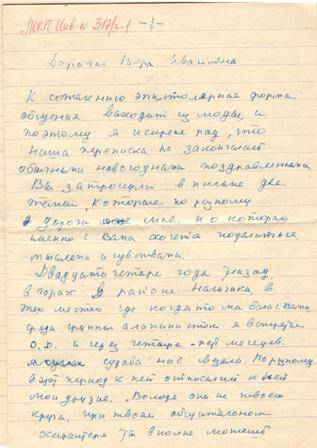 МКП Инв-N 317/3-1 -1-
Дорогая Вера Ивановна
К сожалению эпистолярная форма
общения выходит из моды, и
поэтому я искренне рад, что
наша переписка не закончает
обычными новогодними поздравлениями.
Вы затронули в письме две
темы которые по разному
дороги мне и о которых
именно с Вами хочется поделиться
мыслями и чувствами.
Двадцать четыре года назад
в горах в районе Нальчика в
тех местах где когда то мы были с Вами
среди группы альпинисток я встретил
О.Д. и через четыре-пять месяцев
судьба нас свела. По разному
в этот период к ней относились
мои друзья. "Володя она не твоего
круга, при твоем общительном
характере ты вполне можешь